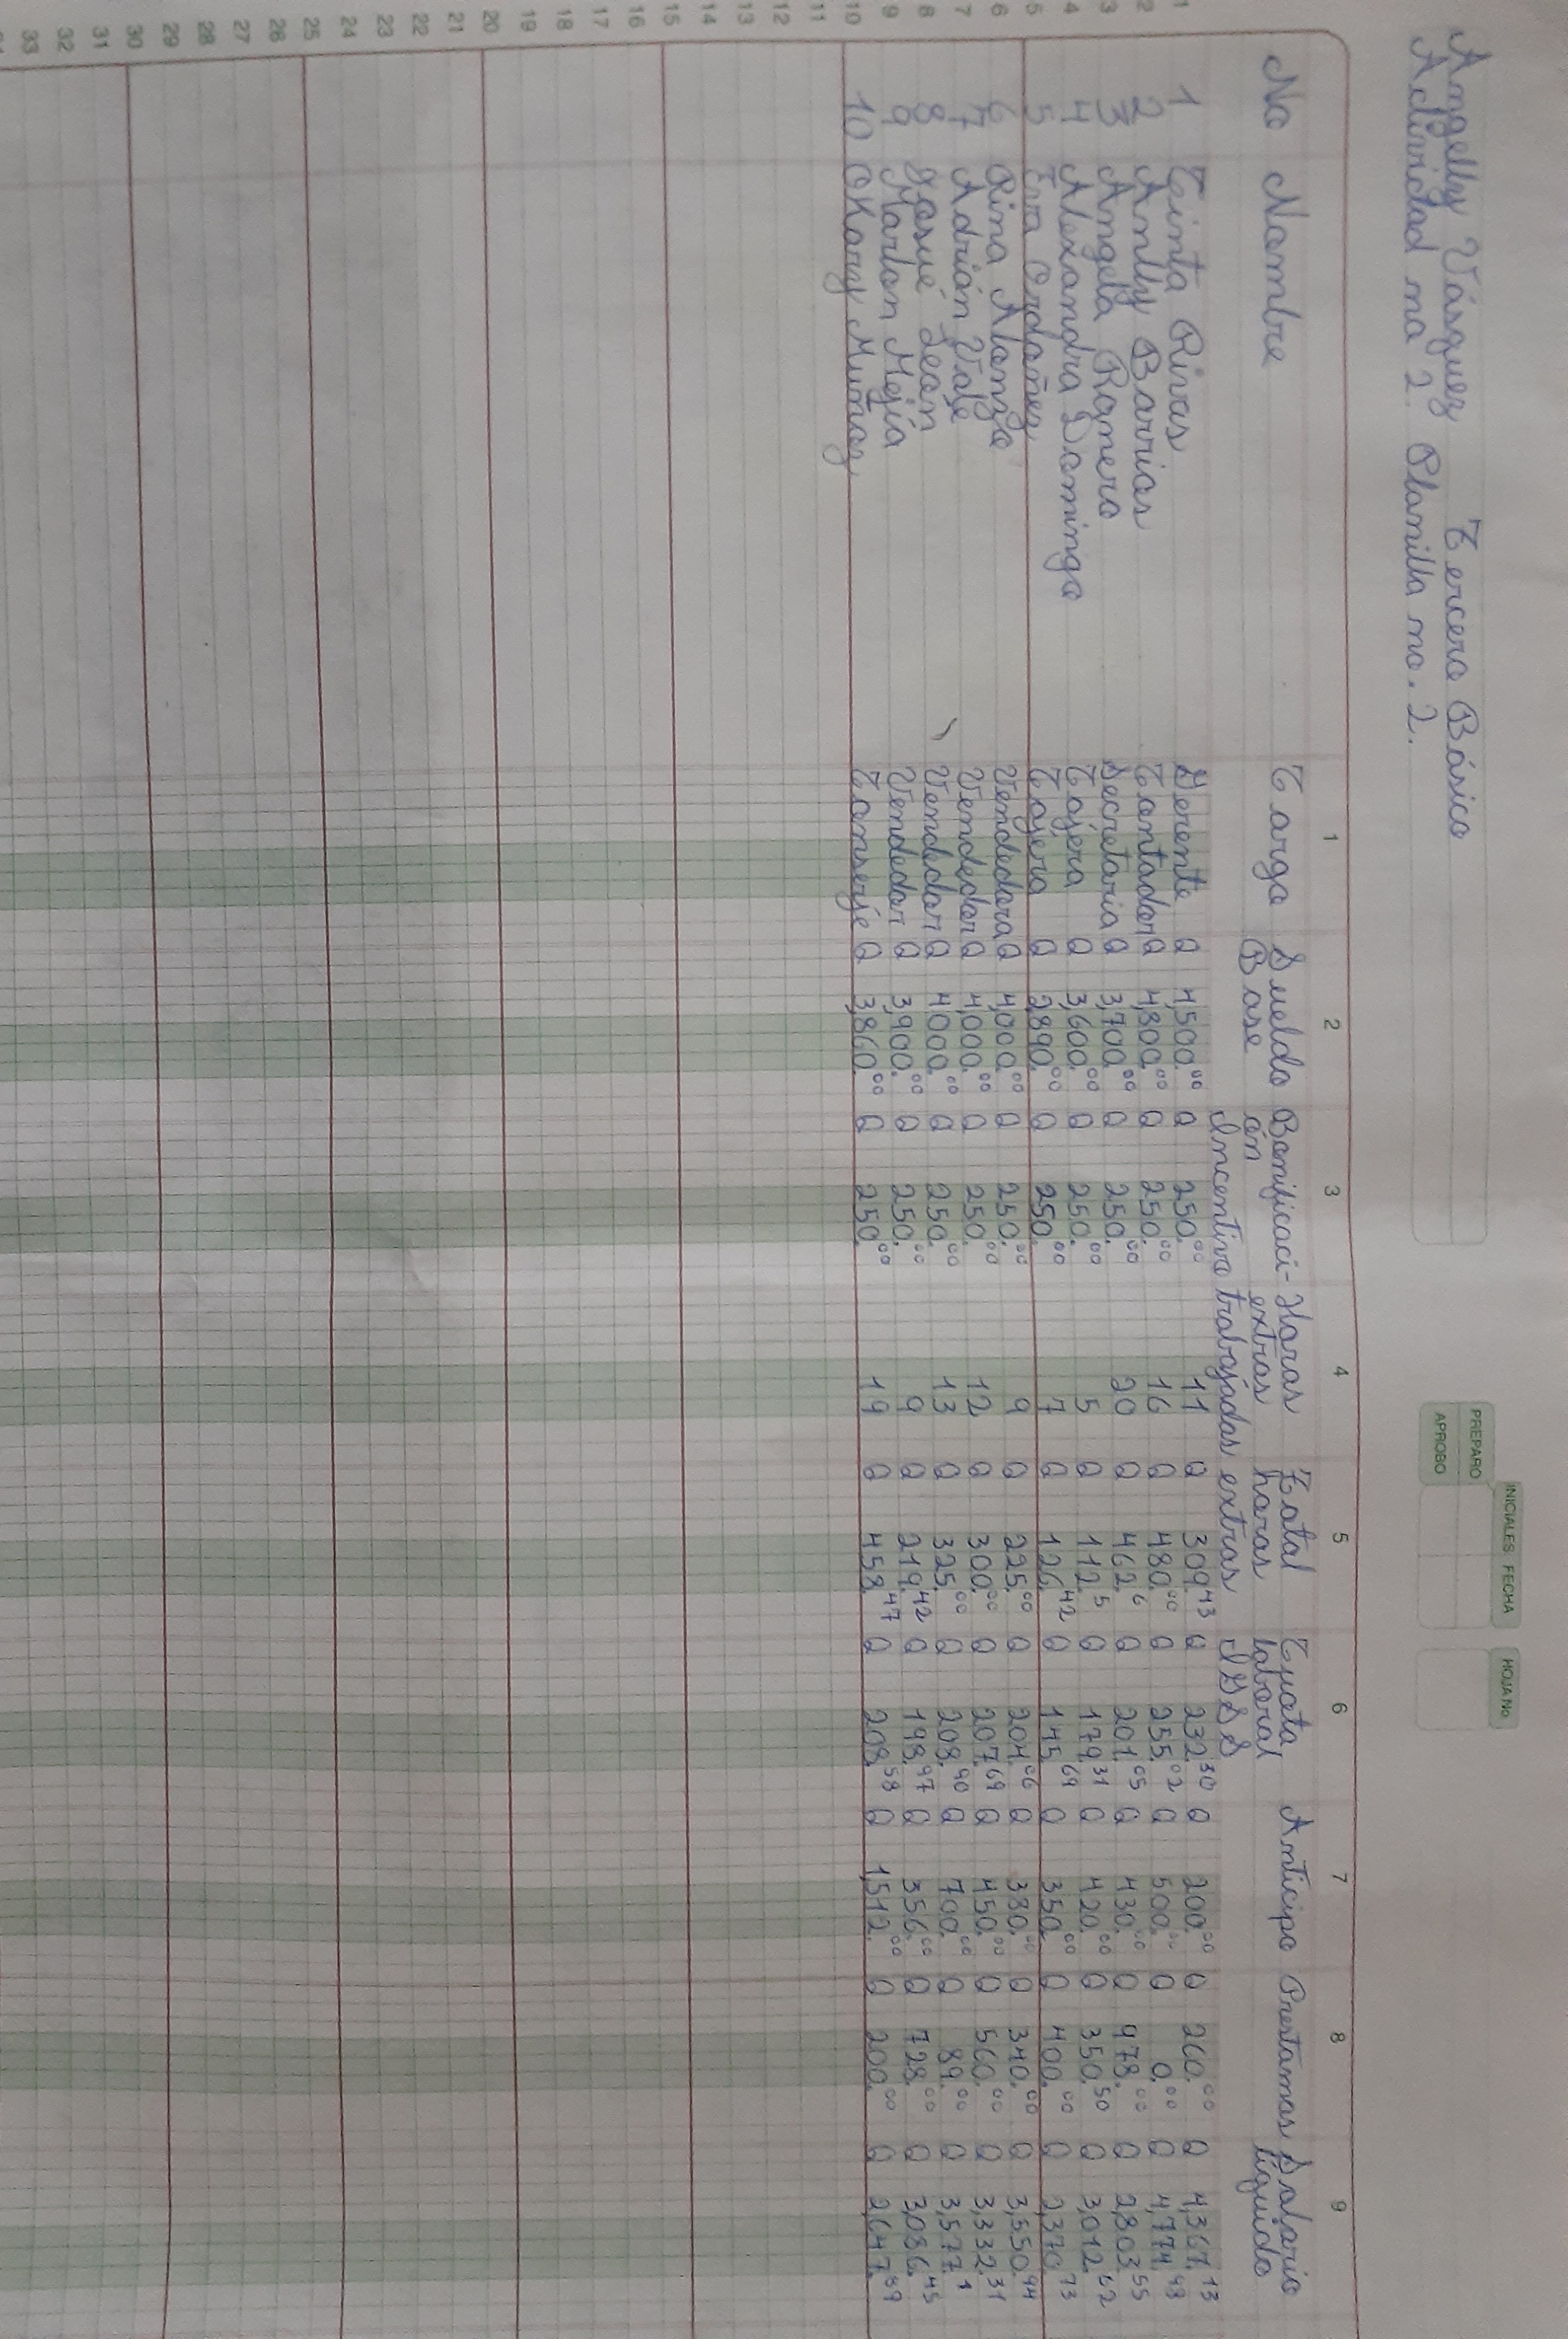 Angelly Vásquez Tercero Básico
Actividad no 2. Planilla no. 2.
INICIALES FECHA HOJA No.
PREPARO
APROBO
1 2 3 4 5 6 7 8 9
No Nombre Cargo Sueldo Base Bonificaci-ón Incentivo Horas extras trabajadas Total horas extras Cuota laboral IGSS Anticipo Prestamos Salario liquido
1 Cinta Rivas Gerente Q 4,500.00 Q 250.00 11 Q 309.43 Q 232.30 Q 200.00 Q 260.00 Q 4,367.13
2 Antly Barrios Contador Q 4,800.00 Q 250.00 16 Q 480.00 Q 255.02 Q 500.00 Q 0.00 Q 4,774.98
3 Angela Ranero Secretaria Q 3,700.00 Q 250.00 20 Q 462.6 Q 201.05 Q 430.00 Q 978.00 Q 2,803.55
4 Alexandra Domingo Cajera Q 3,600.00 Q 250.00 5 Q 112.5 Q 179.31 Q 420.00 Q 350.50 Q 3,012.
5 Ordoñez Cajera Q 2,890.00 Q 250.00 7 Q 126.42 Q 145.69 Q 350.00 Q 400.00 Q 2,370.73
6 Rina Alonzo Vendedora Q 4,000.00 Q 250.00 9 Q 225.00 Q 204.06 Q 380.00 Q 340.00 Q 3,550.94
7 Adrián Vale Vendedor Q 4,000.00 Q 250.00 12 Q 300.00 Q 207.69 Q 450.00 Q 560.00 Q 3,332.31
8 Josué León Vendedor Q 4,000.00 Q 250.00 13 Q 325.00 Q 208.90 Q 700.00 Q 89.00 Q 3,577.1
9 Marlon Mejía Vendedor Q 3,900.00 Q 250.00 9 Q 219.42 Q 198.97 Q 356.00 Q 728.00 Q 3,086.45
10 OKarey Muñoz Conserje Q 3,860.00 Q 250.00 19 Q 458.47 Q 208.58 Q 1,512.00 Q 200.00 Q 2,647.89
11
12
13
14
15
16
17
18
19
20
21
22
23
24
25
26
27
28
29
30
31
32
33